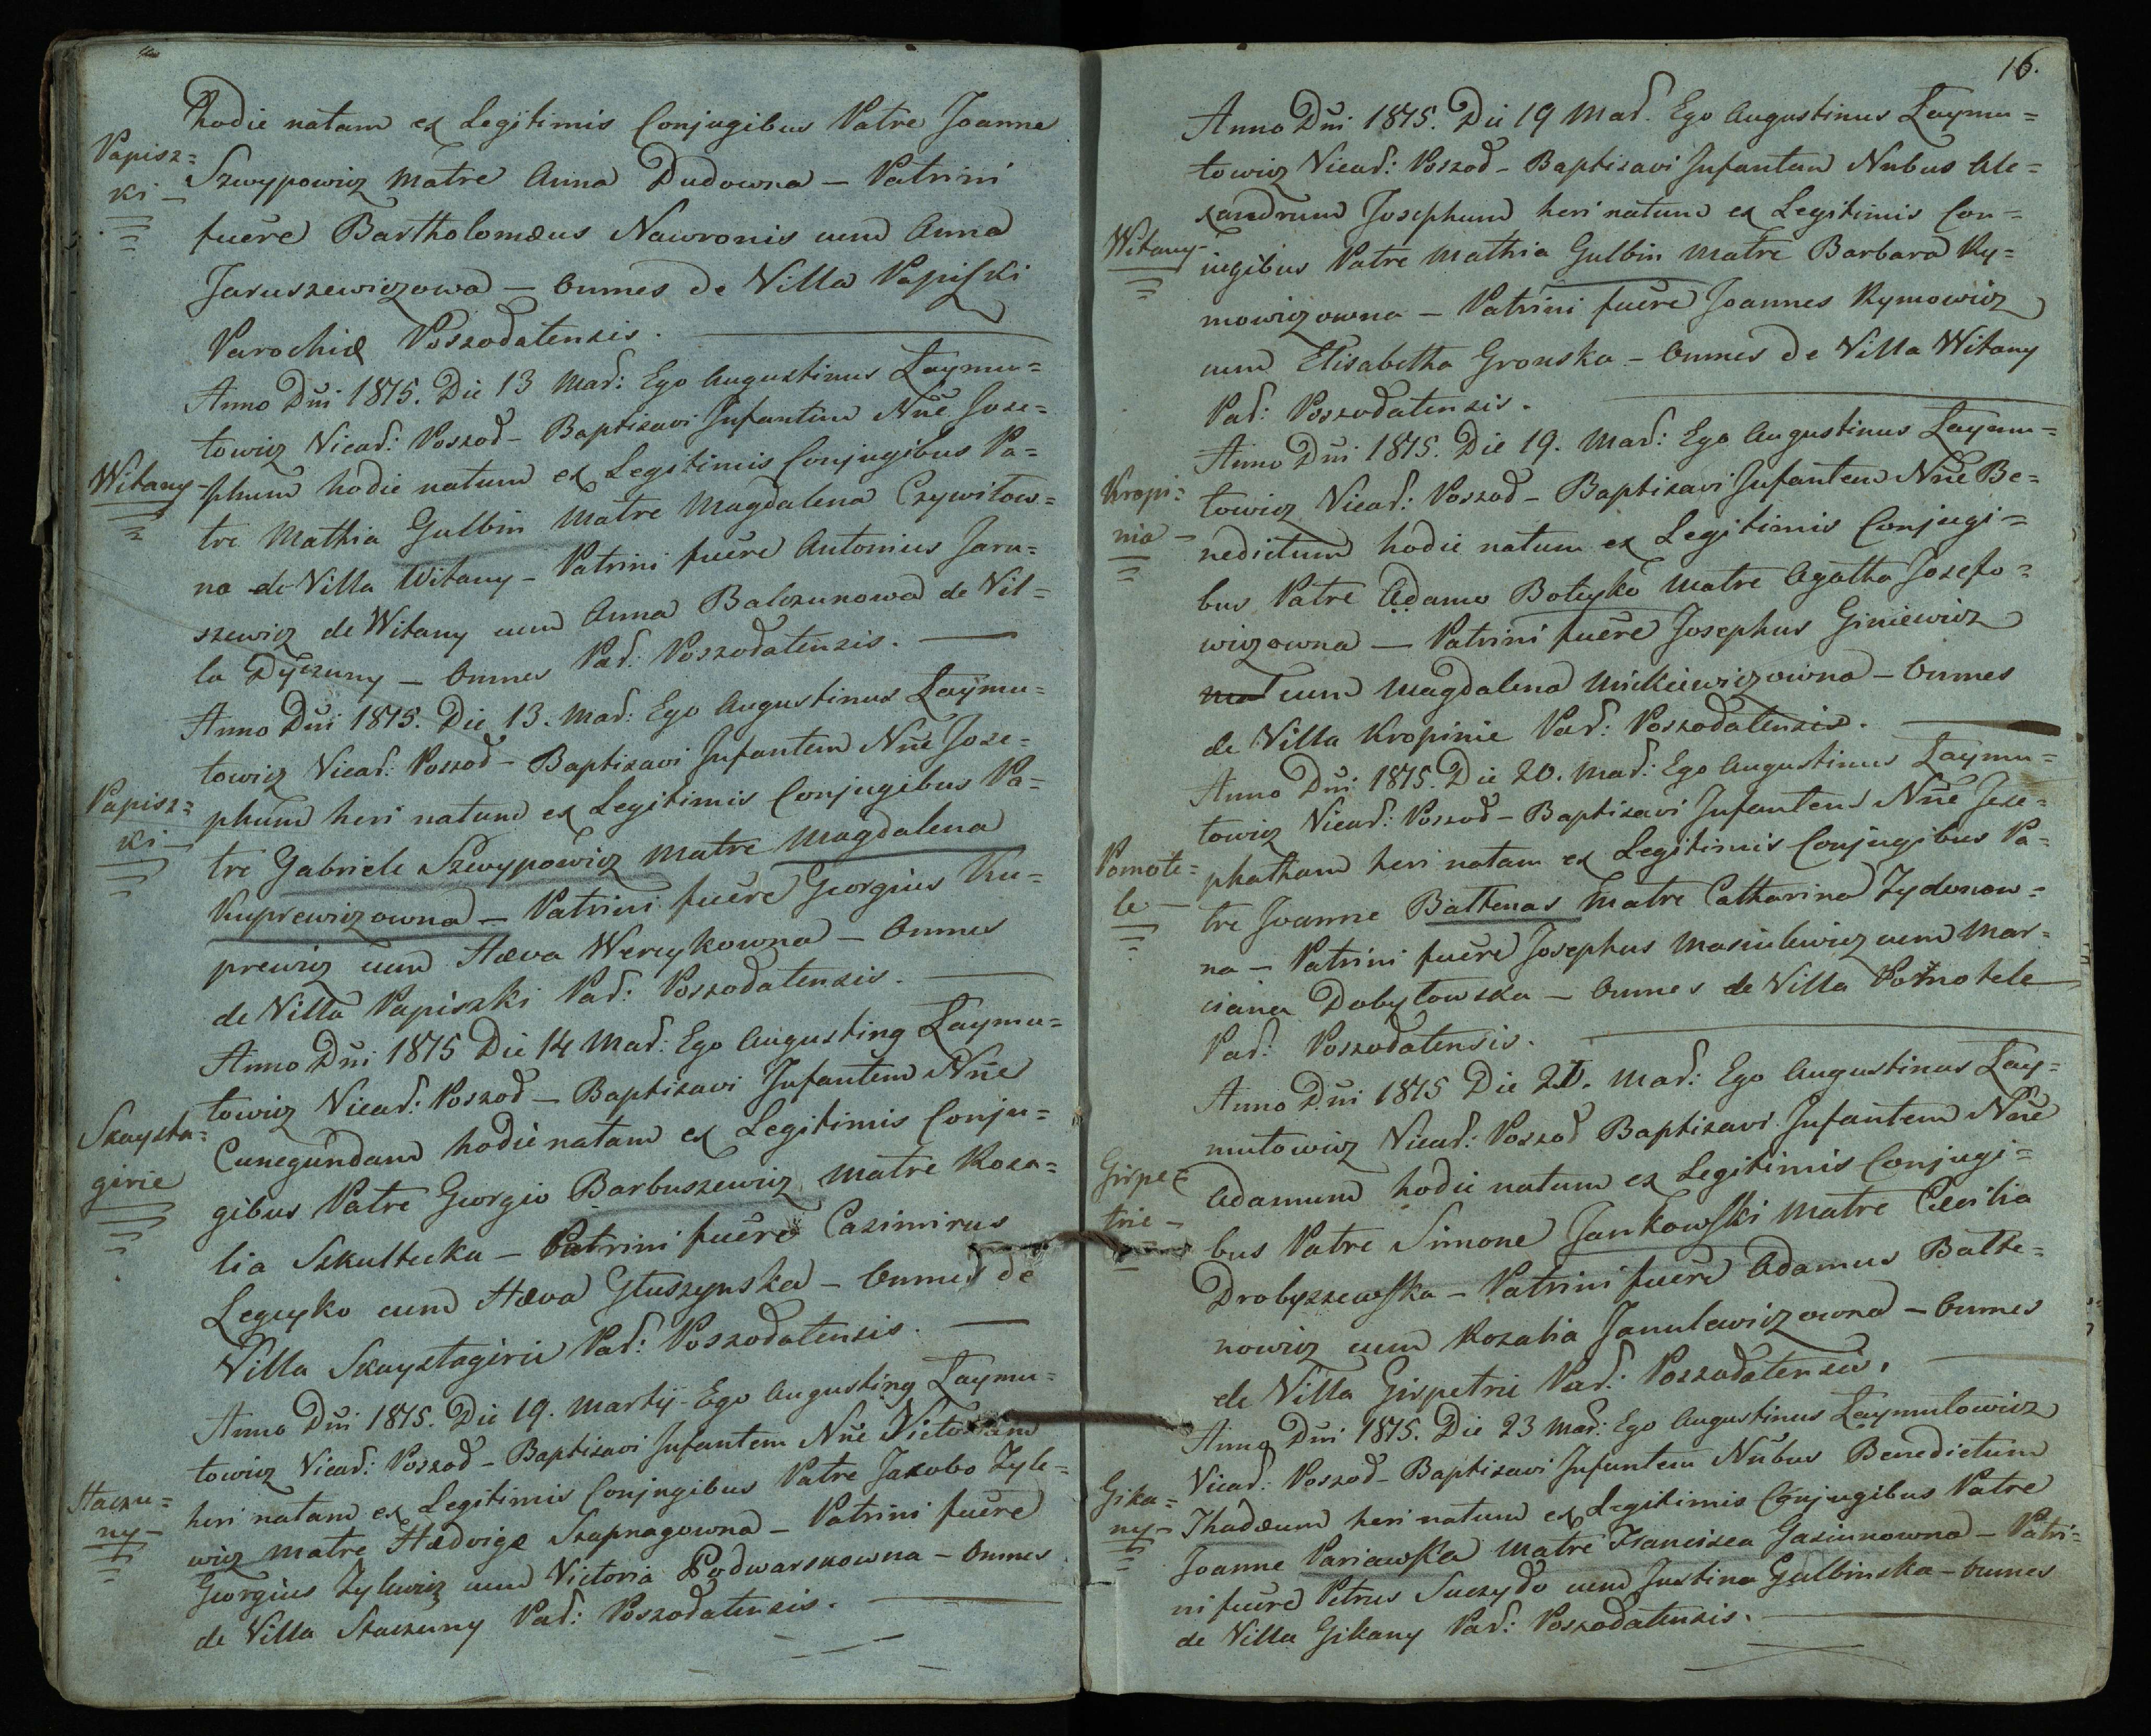 hodie natam ex Legitimis Conjugibus Patre Joanne
Papisz=
ki –
Szwypowicz Matre Anna Dudowna – Patrini
fuêre Bartholomæus Nawronis cum Anna
Jaruszewiczowa – Omnes de Villa Papiszki
Parochiæ Poszodatensis.
Anno Dni 1815. Die 13 Mar: Ego Augustinus Laymu=
towicz Vicar: Poszod – Baptisavi Infantem Nñe Jose=
Witany –
phum hodie natum ex Legitimis Conjugibus Pa=
tre Mathia Gulbin Matre Magdalena Czywilow=
na de Villa Witany – Patrini fuêre Antonius Jaru=
szewicz de Witany cum Anna Balczunowa de Vil=
la Dyczuny – Omnes Par: Poszodatensis.
Anno Dni 1815. Die 13. Mar: Ego Augustinus Laymu=
towicz Vicar: Poszod – Baptisavi Infantem Nñe Jose=
Papisz=
ki –
phum heri natum ex Legitimis Conjugibus Pa=
tre Gabriele Szwypowicz Matre Magdalena
Kuprewiczowna – Patrini fuêre Georgius Ku=
prewicz cum Hæva Wereykowna – Omnes
de Villa Papiszki Par: Poszodatensis.
Anno Dni 1815 Die 14 Mar: Ego Augusting Laymu=
towicz Vicar: Poszod – Baptisavi Infantem Nñe
Skaysta=
girie
Cunegundam hodie natam ex Legitimis Conju=
gibus Patre Georgio Barbuszewicz Matre Roza=
lia Szkultecka – Patrini fuêre Casimirus
Legeyko cum Hæva Gluszynska – Omnes de
Villa Skaystagirie Par: Poszodatensis.
Anno Dni 1815. Die 19. Martij – Ego Augusting Laymu=
towicz Vicar: Poszod – Baptisavi Infantem Nñe Victoriam
Staczu=
ny –
heri natam ex Legitimis Conjugibus Patre Jakobo Zyle=
wicz Matre Hedvige Szapnagowna – Patrini fuêre
Georgius Zylewicz cum Victoria Podwarskowna – Omnes
de Villa Staczuny Par: Poszodatensis.
16.
Anno Dni 1815. Die 19 Mar. Ego Augustinus Laymu=
towicz Vicar: Poszod – Baptisavi Infantem Nnbus Ale=
xandrum Josephum heri natum ex Legitimis Con=
Witany –
jugibus Patre Mathia Gulbin Matre Barbara Ry=
mowiczowna – Patrini fuêre Joannes Rymowicz
cum Elisabetha Gronska – Omnes de Villa Witany
Par: Poszodatensis.
Anno Dni 1815. Die 19. Mar: Ego Augustinus Laymu=
Kropi=
nie –
towicz Vicar: Poszod – Baptisavi Infantem Nñe Be=
nedictum hodie natum ex Legitimis Conjugi=
bus Patre Adamo Boteyko Matre Agatha Josefo=
wiczowna – Patrini fuêre Josephus Giniewicz
cum Magdalena Mickiewiczowna – Omnes
de Villa Kropinie Par: Poszodatensis.
Anno Dni 1815. Die 20. Mar: Ego Augustinus Laymu=
towicz Vicar: Poszod – Baptisavi Infantem Nñe Jose=
Pomote=
le –
phatham heri natam ex Legitimis Conjugibus Pa=
tre Joanne Battenas Matre Catharina Zydonow=
na – Patrini fuêre Josephus Masiulewicz cum Mar=
ciana Dobytowska – Omnes de Villa Pomotele
Par: Poszodatensis.
Anno Dni 1815 Die 21. Mar: Ego Augustinus Lay=
mutowicz Vicar: Poszod Baptisavi Infantem Nñe
Girpe=
trie –
Adamum hodie natum ex Legitimis Conjugi=
bus Patre Simone Jankowski Matre Cecilia
Drobyszewska – Patrini fuêre Adamus Balte=
nowicz cum Rozalia Janulewiczowna – Omnes
de Villa Girpetrie Par: Poszodatensis.
Anno Dni 1815. Die 23 Mar: Ego Augustinus Laymutowicz
Vicar: Poszod – Baptisavi Infantem Nnbus Benedictum
Gika=
ny –
Thadæum heri natum ex Legitimis Conjugibus Patre
Joanne Pariawska Matre Francisca Gasiunowna – Patri=
ni fuêre Petrus Suczydo cum Justina Gulbinska – Omnes
de Villa Gikany Par: Poszodatensis.